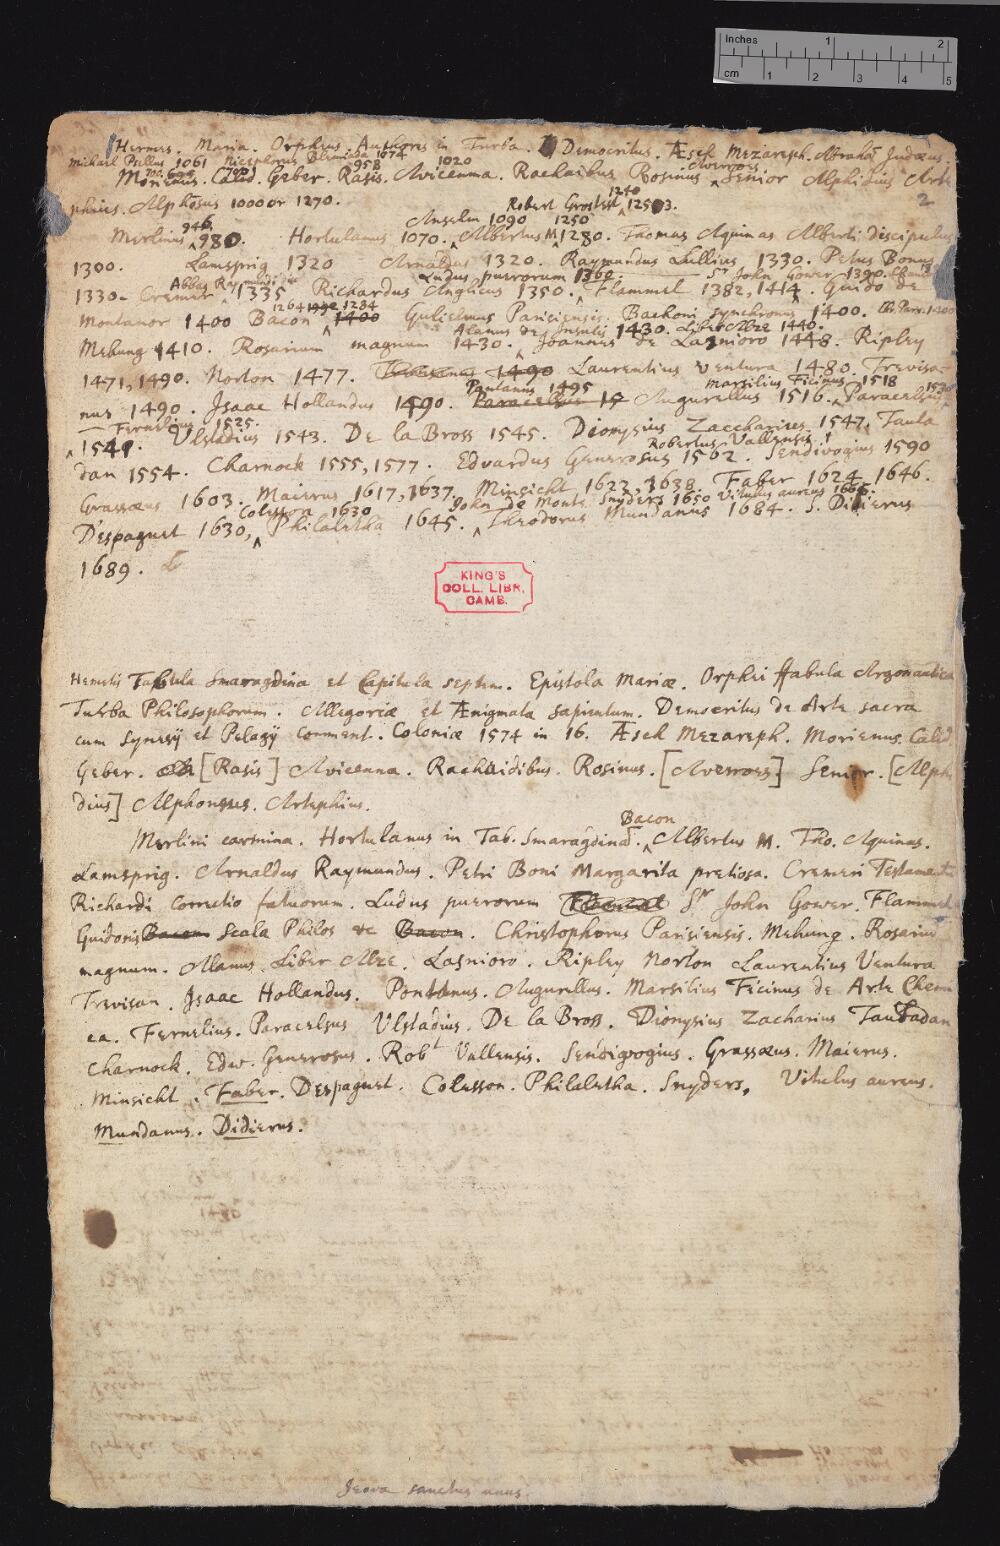 Inches 1 2
cm 1 2 3 4 5
Hermes. Maria. Orpheus. Authores in Turba. Democritus. Æsch Mezareph. Abrahā Judæus.
Michael Psellus 1061 Nicephorus Blemmida 1074 1020
700 958 Averroes
Morienus. Calid. Geber. Rasis. Avicenna. Rachaibus Rosinus ‸ Senior Alphidius Arte
2
phius. Alphosus 1000 or 1270. Robert Grostest ‸ 1253.
1240
946 Anselm 1090 1250
Merlinus ‸ 980. Hortulanus 1070. ‸ Albertus M 1280. Thomas Aquinas Alberti discipulus
1300. Lamsprig 1320 Arnaldus 1320. Raymundus Lullius 1330. Petus Bonus
Abbas Ludus puerorum 1360. Sr John Gower 1390.
1330. Cremer ‸ 1335 Richardus Anglicus 1350. ‸ Flammel 1382, 1414. Guido de
1264 1284
Montanor 1400 Bacon ‸ 1400 Gulielmus Parisiensis. Bachoni synchronus 1400.
Alanus de Insulis 1430. Liber Alze 1440.
Mehung 1410. Rosarium magnum 1430. ‸ Joannes de Lasnioro 1448. Ripley
1471, 1490. Norton 1477. 1490 Laurentius Ventura 1480. Trevisa-
Pontanus 1495 Marsilius Ficinus 1518 1530
nus 1490. Isaac Hollandus 1490. Paracelsus 15 Augurellus 1516. ‸ Paracelsus
Fernelius 1525.
‸ 1541. Ulstadius 1543. De la Bross 1545. Dionysius Zaccharires 1547. Taula
Robertus Vallensis
dan 1554. Charnock 1555, 1577. Edvardus Generosus 1562. ‸ Sendivogius 1590
Grassæus 1603. Maierus 1617, 1637. Minsicht 1622, 1638. Faber 1624, 1646.
Colesson 1630 John de Monte Snyders 1650 Vitulus aureus
D'espagnet 1630, ‸ Philaletha 1645. ‸ Theodorus Mundanus 1684. S. Didierus
1689.
KING'S
COLL. LIBR.
CAMB.
Hemetis Tabula Smaragdina et Capitula septem. Epistola Mariæ. Orphei ffabula Argonautica
Turba Philosophorum. Allegoriæ et Ænigmata sapientum. Democritus de Arte sacra
cum Synesij et Pelagij comment. Coloniæ 1574 in 16. Æsch Mezareph. Morienus. Calid
Geber. [Rasis] Avicenna. Rachaidibus. Rosinus. [Averroes] Senior. [Alphi
dius] Alphonsus. Artephius.
Bacon
Merlini carmina. Hortulanus in Tab. Smaragdinā. ‸ Albertus M. Tho. Aquinas.
Lamsprig. Arnaldus Raymundus. Petri Boni Margarita pretiosa. Cremeri Testament
Richardi correctio fatuorum. Ludus puerorum Flammel Sr John Gower. Flammel
Guidonis Bacon Scala Philos &c Bacon. Christophorus Parisiensis. Mehung. Rosariū
magnum. Alanus. Liber Alze. Lasnioro. Ripley Norton Laurentius Ventura
Trevisan. Isaac Hollandus. Pontanus. Augurellus. Marsilius Ficinus de Arte Chem
ca. Fernelius. Paracelsus Ulstadius. De la Bross. Dionysius Zacharius Tauladan
Charnock. Edw. Generosus. Robt Vallensis. Sendivogius. Grassæus. Maierus.
Minsicht. Faber. Despagnet. Colesson. Philaletha. Snyders. Vitulus aureus.
Mundanus. Didierus.
Jeova sanctus unus